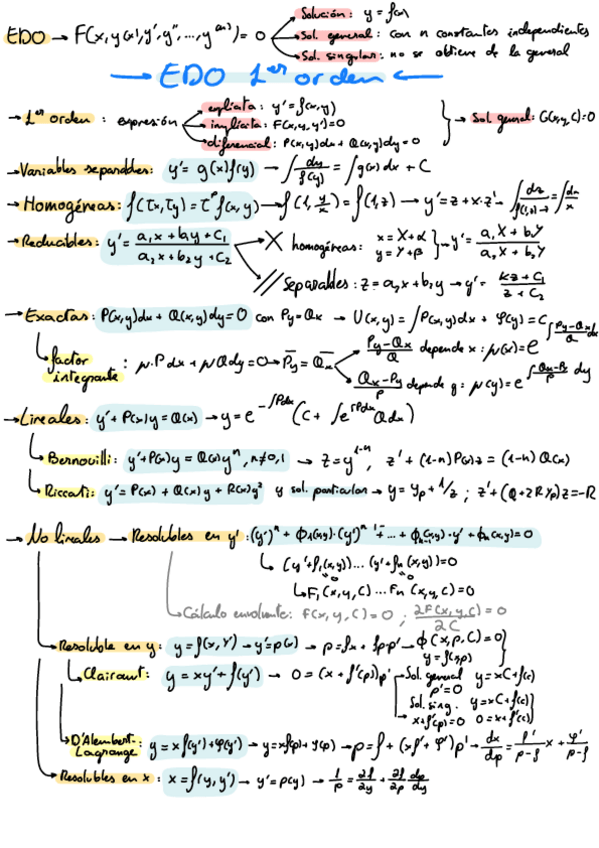 EDO → F(x, y(x), y', y'', ..., y⁽ⁿ⁾) = 0
Solución: y = f(x)
Sol. general: con n constantes independientes
Sol. singular: no se obtiene de la general
→ EDO 1er orden ←
→ 1er orden : expresión
explícita: y' = f(x,y)
implícita: F(x,y,y')=0
diferencial: P(x,y)dx + Q(x,y)dy = 0
→ Sol. general: G(x,y,C)=0
→ Variables separables: y' = g(x)f(y) → ∫ dy/f(y) = ∫ g(x)dx + C
→ Homogéneas: f(τx,τy) = τᵖf(x,y) → f(1, y/x) = f(1,z) → y' = z + x·z' → ∫ dz/(f(1,z)-z) = ∫ dx/x
→ Reducibles: y' = (a₁x + b₁y + c₁)/(a₂x + b₂y + c₂)
X homogéneas: x = X+α y = Y+β } y' = (a₁X + b₁Y)/(a₂X + b₂Y)
// Separables: z = a₂x + b₂y → y' = (kz + c₁)/(z + c₂)
→ Exactas: P(x,y)dx + Q(x,y)dy = 0 con Py = Qx → U(x,y) = ∫P(x,y)dx + φ(y) = C
factor integrante : μ·Pdx + μQdy = 0 → P̄y = Q̄x
(Py-Qx)/Q depende x : μ(x) = e^∫(Py-Qx)/Q dx
(Qx-Py)/P depende y : μ(y) = e^∫(Qx-Py)/P dy
→ Lineales: y' + P(x)y = Q(x) → y = e^-∫Pdx (C + ∫e^∫Pdx Qdx)
Bernouilli: y' + P(x)y = Q(x)yⁿ, n≠0,1 → z = y¹⁻ⁿ, z' + (1-n)P(x)z = (1-n)Q(x)
Riccati: y' = P(x) + Q(x)y + R(x)y² y sol. particular → y = yp + 1/z ; z' + (Q+2Ryp)z = -R
→ No lineales → Resolubles en y' : (y')ⁿ + ϕ₁(x,y)·(y')ⁿ⁻¹ + ... + ϕn-1(x,y)·y' + ϕn(x,y) = 0
(y'+f₁(x,y))...(y'+fn(x,y))=0
F₁(x,y,C)...Fn(x,y,C)=0
Cálculo envolvente: F(x,y,C) = 0 ; ∂F(x,y,C)/∂C = 0
Resoluble en y: y = f(x,y') → y' = p(x) → p = fx + fp·p' → ϕ(x,p,C)=0
y = f(x,p)
Clairaut: y = xy' + f(y') → 0 = (x + f'(p))p'
Sol. general y = xC + f(c)
p' = 0
Sol. sing. y = xC + f(c)
x + f'(p) = 0 0 = x + f'(c)
D'Alembert-Lagrange: y = xf(y') + φ(y') → y = xf(p) + φ(p) → p = f + (xf' + φ')p' → dx/dp = f'/(p-f) x + φ'/(p-f)
Resolubles en x: x = f(y,y') → y' = p(y) → 1/p = ∂f/∂y + ∂f/∂p dp/dy